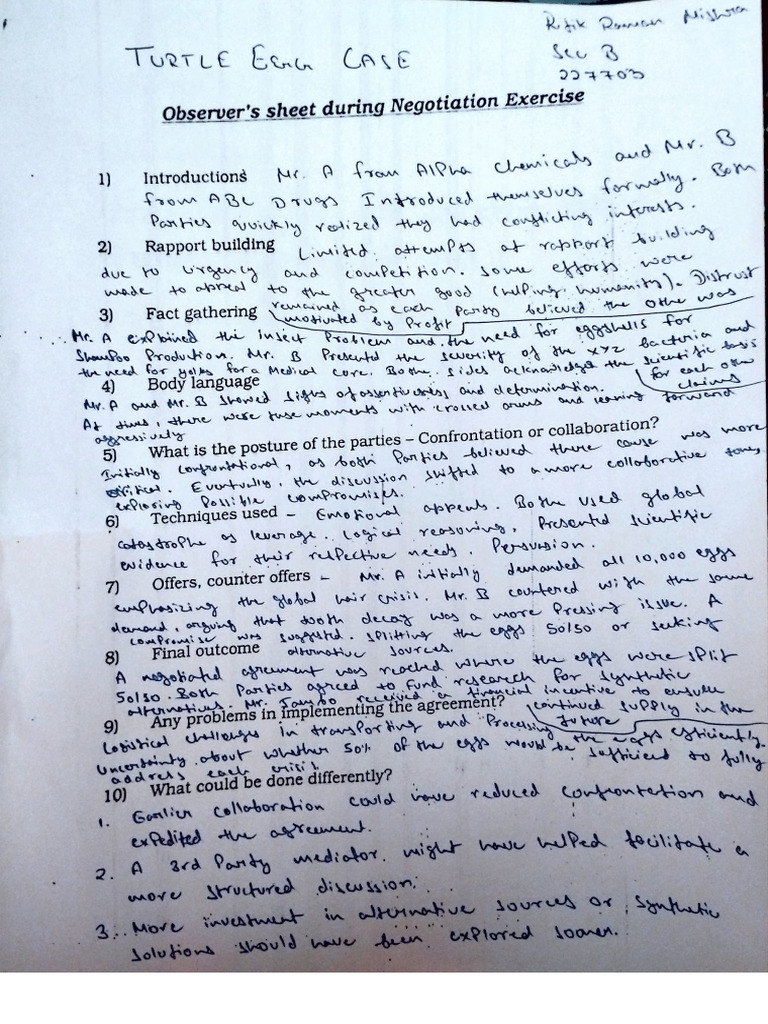 Ritik Raman Mishra
TURTLE EGG CASE
Sec B
227703
Observer's sheet during Negotiation Exercise
1) Introductions Mr. A from Alpha Chemicals and Mr. B
from ABC Drugs Introduced themselves formally. Both
Parties quickly realized they had conflicting interests.
2) Rapport building Limited attempts at rapport building
due to urgency and competition. Some efforts were
made to appeal to the greater good (helping humanity). Distrust
remained as each Party believed the other was
3) Fact gathering motivated by Profit
Mr. A explained the insect Problem and the need for eggshells for
Shampoo Production. Mr. B Presented the severity of the XYZ bacteria and
the need for yolks for a Medical core. Bothe sides acknowledge the scientific basis
for each other
claims
4) Body language
Mr. A and Mr. B showed signs of assertiveness and determination.
At times, there were tense moments with crossed arms and leaning forward
aggressively
5) What is the posture of the parties – Confrontation or collaboration?
Initially confrontational, as both Parties believed there cause was more
critical. Eventually, the discussion shifted to a more collaborative tone,
exploring Possible compromises.
6) Techniques used – Emotional appeals. Bothe used global
catastrophe as leverage. Logical reasoning, Presented scientific
evidence for their respective needs. Persuasion.
7) Offers, counter offers – Mr. A initially demanded all 10,000 eggs
emphasizing the global hair crisis. Mr. B countered with the same
demand, arguing that tooth decay was a more Pressing issue. A
compromise was suggested. splitting the eggs 50/50 or seeking
alternative sources.
8) Final outcome
A negotiated agreement was reached where the eggs were split
50/50. Both Parties agreed to fund research for synthetic
alternatives. Mr. received a financial incentive to ensure
continued supply in the
future
9) Any problems in implementing the agreement?
Logistical challenges in transporting and Processing the eggs efficiently.
Uncertainty about whether 50% of the eggs would be sufficient to fully
address each crisis.
10) What could be done differently?
1. Earlier collaboration could have reduced confrontation and
expedited the agreement.
2. A 3rd Party mediator might have helped facilitate a
more structured discussion.
3. More investment in alternative sources or synthetic
solutions should have been explored sooner.